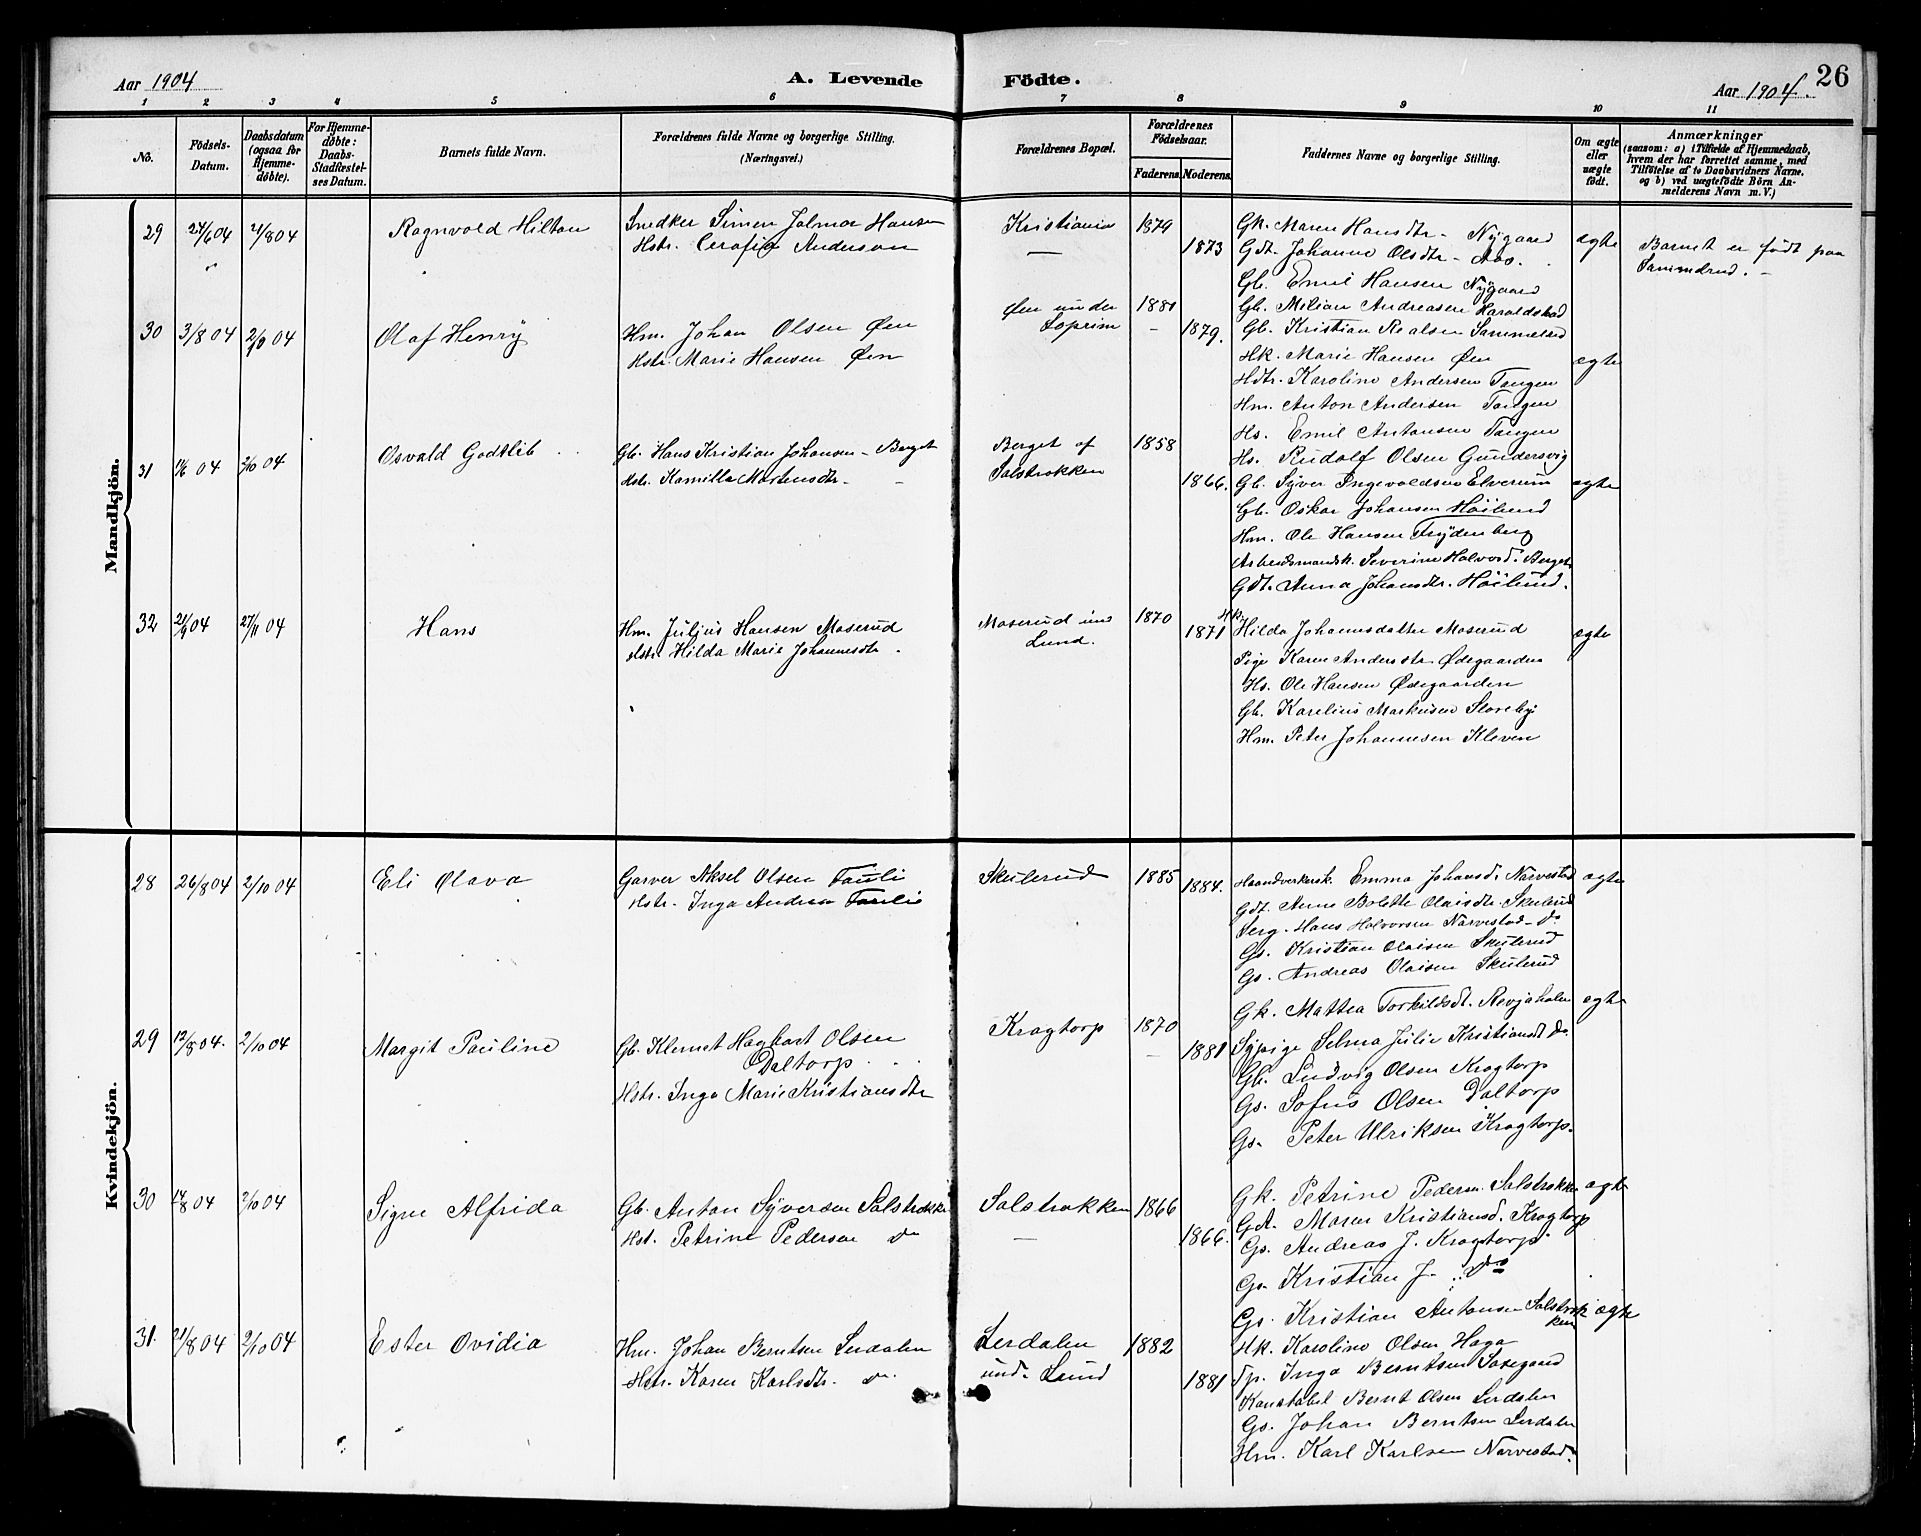 Aar 1904
A. Levende
Födte.
Aar 1904.
26
1 2 3 4 5 6 7 8 9 10 11
No.
Födsels-
Datum.
Daabsdatum
(ogsaa for
Hjemme-
döbte).
For Hjemme-
döbte:
Daabs-
Stadfæstel-
ses Datum.
Barnets fulde Navn.
Forældrenes fulde Navne og borgerlige Stilling.
(Næringsvei.)
Forældrenes Bopæl.
Forældrenes
Födselsaar.
Faderens. Moderens.
Faddernes Navne og borgerlige Stilling.
Om ægte
eller
uægte
födt.
Anmærkninger
(saasom: a) i Tilfælde af Hjemmedaab,
hvem der har forrettet samme, med
Tilföielse af to Daabsvidners Navne,
og b) ved uægtefödte Börn An-
melderens Navn m. V.)
Mandkjön.
29 27/6 04 21/8 04 Ragnvald Hilton
Snedker Simen Jalmar Hansen
Hstr. Cerafia Anderson
Kristiania
—
1879
1873
Gk. Maren Hansdtr - Nÿgaard
Gdt. Johanne Olsdtr - Aas.
Gb. Emil Hansen Nÿgaard
Gb. Milian Andreasen Haraldstad
Gb. Kristian Roalsen
ægte
Barnet er födt paa
30 3/8 04 2/9 04 Olaf Henrÿ
Hm. Johan Olsen Øen
Hstr. Marie Hansen Øen
Øen under
Soprim
1881
1879.
Hk. Marie Hansen Øen
Hdtr. Karoline Andersen Tangen
Hm. Anton Andersen Tangen
Hs. Emil Antonsen Tangen
Hs. Rudolf Olsen Gundersvig
ægte
31 04 2/10 04 Osvald Godtlib
Gb. Hans Kristian Johansen - Berget
Hstr. Kamilla Martinsdtr -
Berget af
Salstrokken
1858
1866.
Gb. Sÿver Ingevaldsen Elverum
Gb. Oskar Johansen Höilund
Hm. Ole Hansen Frÿdenberg
Arbeidsmandsk. Severine Halvorsd. Berget
Gdt. Anna Johansdtr. Höilund.
ægte
32 21/9 04 27/11 04 Hans
Hm. Julius Hansen Maserud
Hstr Hilda Marie Johannesdtr.
Maserud und
Lund.
1870
1871
Hk.
Hilda Johannesdatter Maserud
Pige Karen Andersdtr. Ødegaarden
Hs. Ole Hansen Ødegaarden
Gb. Karelius Markusen Storeby
Hm. Peter Johannesen Kleven
ægte
Kvindekjön.
28 26/8 04 2/10 04 Eli Olava
Garver Aksel Olsen Fauli
Hstr. Inga Andrea Faulie
Skulerud
1885
1884.
Haandverkersk. Emma Johansd. Narvestad
Gdt. Anne Bolette Olaisdtr. Skulerud
Serg. Hans Halvorsen Narvestad - do
Gs. Kristian Olaisen Skulerud
Gs. Andreas Olaisen Skulerud
ægte
29 12/8 04. 2/10 04 Margit Pauline
Gb. Klemet Hagbart Olsen
Daltorp
Hstr. Inga Marie Kristiansdtr
Kragtorp
1870
1881
Gk. Mattea Torkildsdt. Revjaholen
Sÿpige Selma Julie Kristiansdt do
Gb. Ludvig Olsen Kragtorp
Gs. Sofus Olsen Daltorp
Gs. Peter Ulriksen Kragtorp.
ægte
30 14/8 04 2/10 04 Signe Alfrida
Gb. Anton Sÿversen Salstrokken
Hst. Petrine Pedersen do
Salstrokken
—
1866
1866.
Gk. Petrine Pedersen Salstrokken
Gdt. Maren Kristiansd. Kragtorp
Gs. Andreas J. Kragtorp.
Gs. Kristian J. do
Gs. Kristian Antonsen Salstrokken
ægte
31. 21/8 04 9/10 04 Ester Ovidia
Hm. Johan Berntsen Lerdalen
Hstr. Karen Karlsdtr. do
Lerdalen
und. Lund
1882
1881
Hk. Karoline Olsen Haga
Tp. Inga Berntsen
Konstabel Bernt Olsen Lerdalen
Gs. Johan Berntsen Lerdalen
Hm. Karl Karlsen Narvestad.
ægte